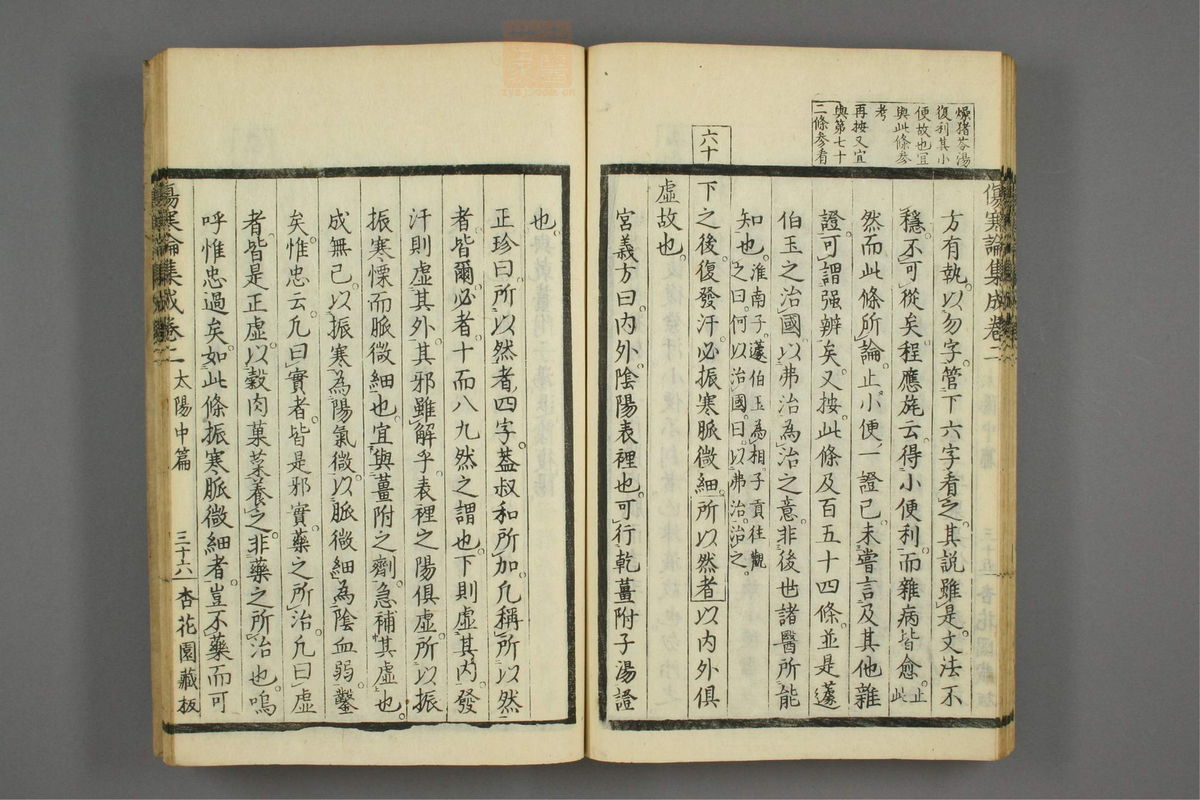 爍猪苓湯
復利其小
便故也宜
與此條參
考
再按又宜
與第七十
二條參看
傷寒論集成卷二
方有執以勿字管下六字者之其說雖是文法不
穩不可從矣程應旄云得小便利而雜病皆愈止此
然而此條所論止小便一證已未嘗言及其他雜
證可謂强辨矣又按此條及百五十四條並是蘧
伯玉之治國以弗治為治之意非後世諸醫所能
知也淮南子蘧伯玉為相子貢往觀之曰何以治國曰以弗治治之
六十
下之後復發汗必振寒脈微細所以然者以内外俱
虛故也
宮義方曰内外陰陽表裡也可行乾薑附子湯證
也
正珍曰所以然者四字葢叔和所加凢稱所以然
者皆爾必者十而八九然之謂也下則虛其内發
汗則虛其外其邪雖解乎表裡之陽俱虛所以振
振寒慄而脈微細也宜與薑附之劑急補其虛也
成無已以振寒為陽氣微以脈微細為陰血弱鑿
矣惟忠云凢曰實者皆是邪實藥之所治凢曰虛
者皆是正虛以穀肉菓菜養之非藥之所治也嗚
呼惟忠過矣如此條振寒脈微細者豈不藥而可
傷寒論集成卷二 太陽中篇 三十六 杏花園藏板